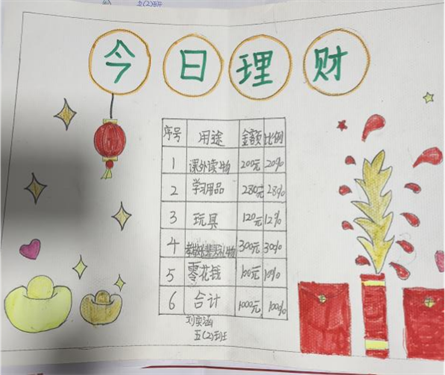 今日理财
序号 用途 金额 比例
1 课外读物 200元 20%
2 学习用品 280元 28%
3 玩具 120元 12%
4 300元 30%
5 零花钱 100元 10%
6 合计 1000元 100%
五(2)班